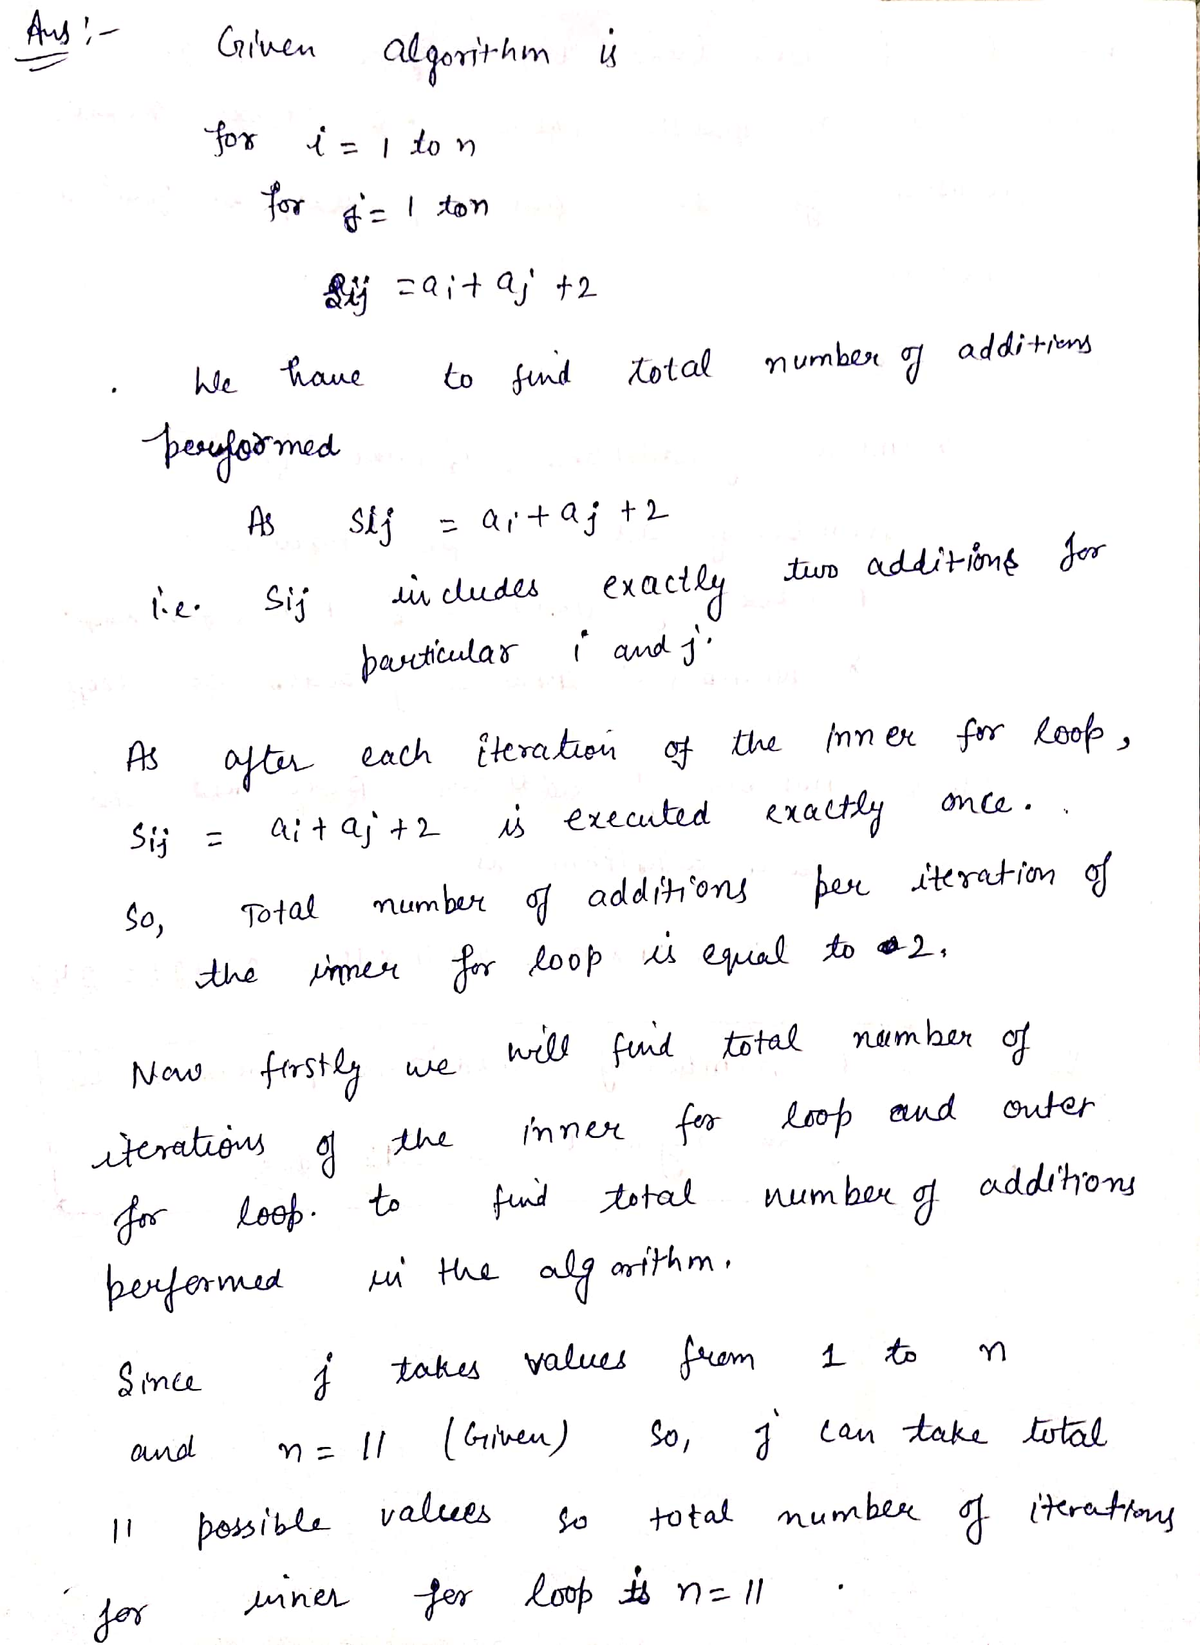 Ans :-
Given algorithm is
for i = 1 to n
for j = 1 to n
Sij = ai + aj + 2
We have to find total number of additions
performed
As Sij = ai + aj + 2
i.e. Sij includes exactly two additions for
particular i and j.
As after each iteration of the inner for loop,
Sij = ai + aj + 2 is executed exactly once.
So, Total number of additions per iteration of
the inner for loop is equal to 2.
Now firstly we will find total number of
iterations of the inner for loop and outer
for loop. to find total number of additions
performed in the algorithm.
Since j takes values from 1 to n
and n = 11 (Given) So, j can take total
11 possible values so total number of iterations
for inner for loop is n = 11